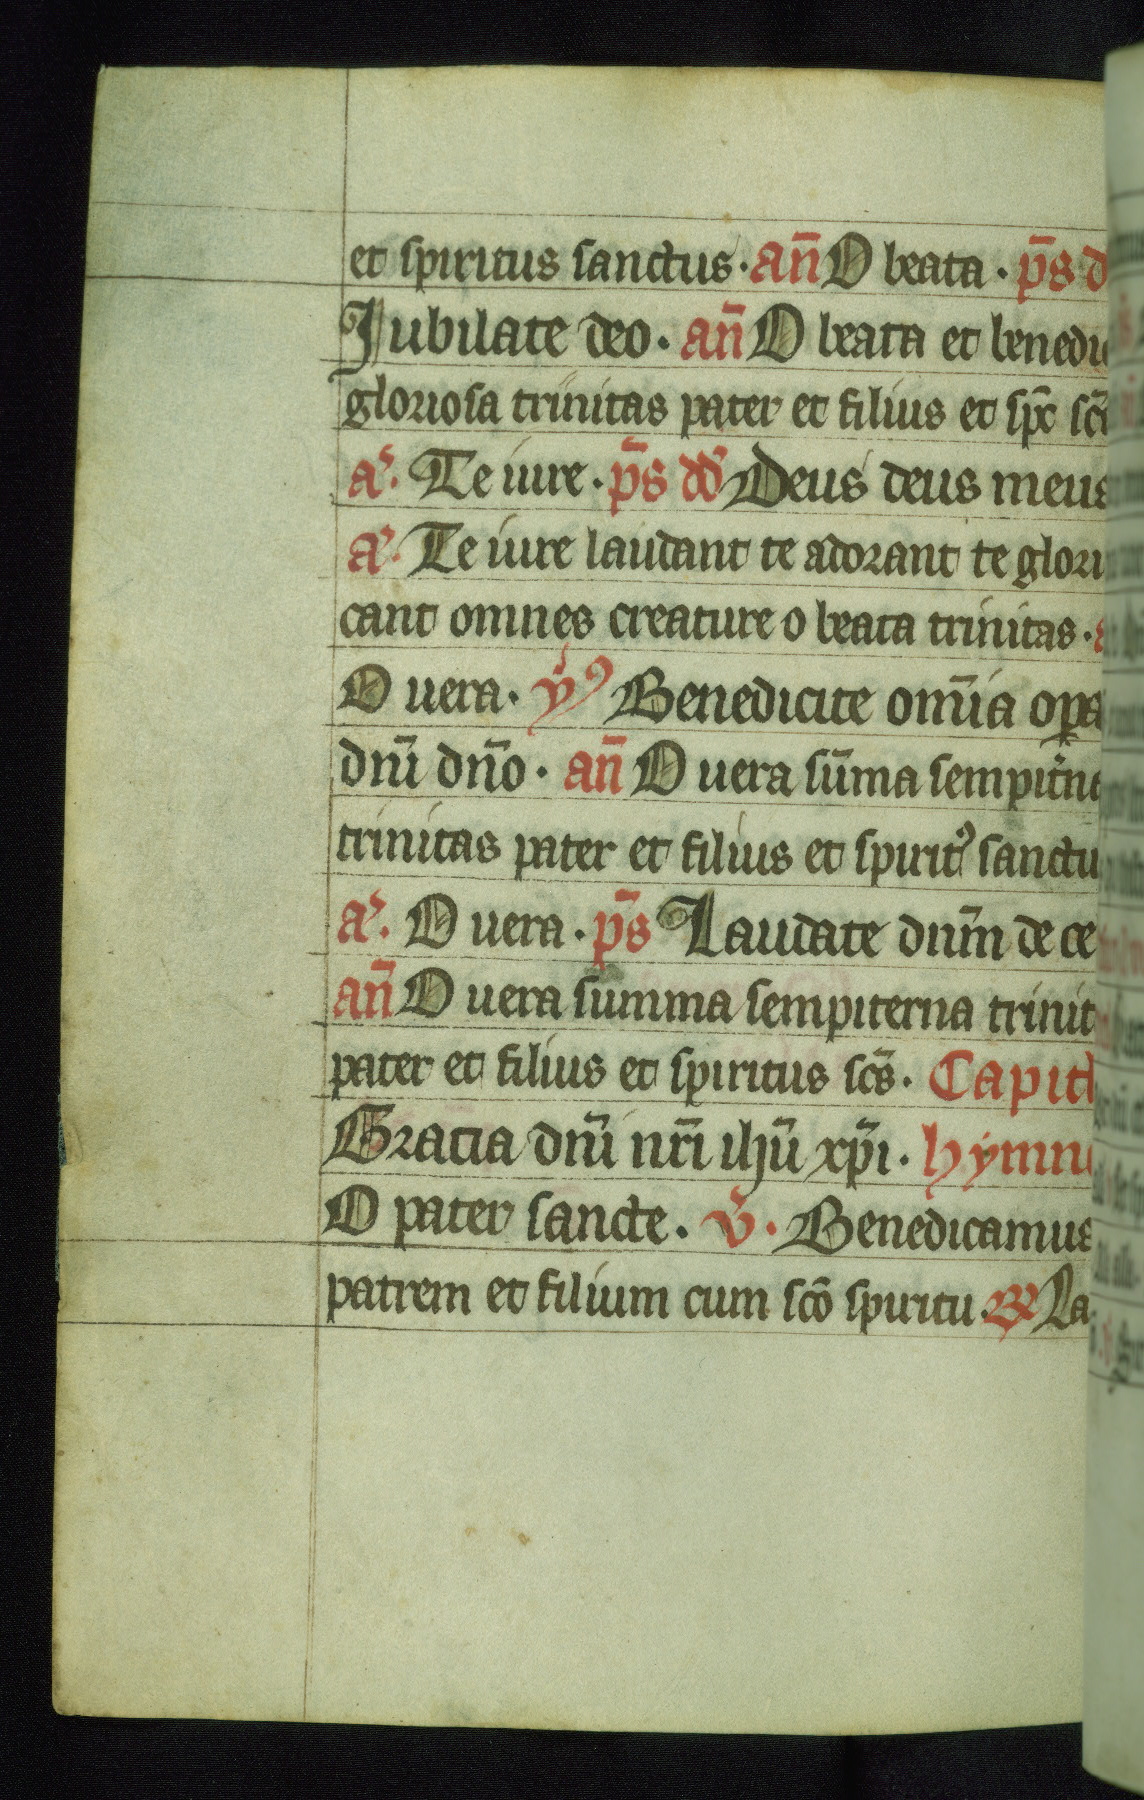 et spiritus sanctus · an̄ O beata · ps̄ d
Jubilate deo · an̄ O beata et benedi
gloriosa trinitas pater et filius et spc̄ sc̄
a᷒. Te iure · ps̄ dd̄ Deus deus meus
a᷒. Te iure laudant te adorant te glori
cant omnes creature o beata trinitas ·
O uera · Benedicite om̄ia opa
dn̄i dn̄o · an̄ O uera sūma sempit̄n
trinitas pater et filius et spiritꝰ sanctu
a᷒. O uera · ps̄ Laudate dnm̄ de ce
an̄ O uera summa sempiterna trinit
pater et filius et spiritus scs̄ · Capitl
Gracia dn̄i nr̄i ihū xp̄i · hymn
O pater sancte · v̄ · Benedicamus
patrem et filium cum scō spiritu · ℟ La